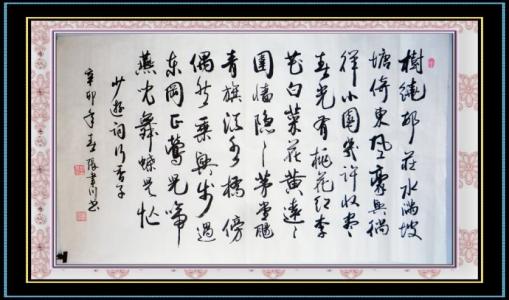 樹繞邨莊水滿坡
塘倚東風豪興徜
徉小園幾許收盡
春光有桃花紅李
花白菜花黄遠〻
圍墙隱〻茅堂颺
青旗流水橋傍
偶然乘興步過
东岡正鶯兒啼
燕兒舞蝶兒忙
少游詞行香子
辛卯年春